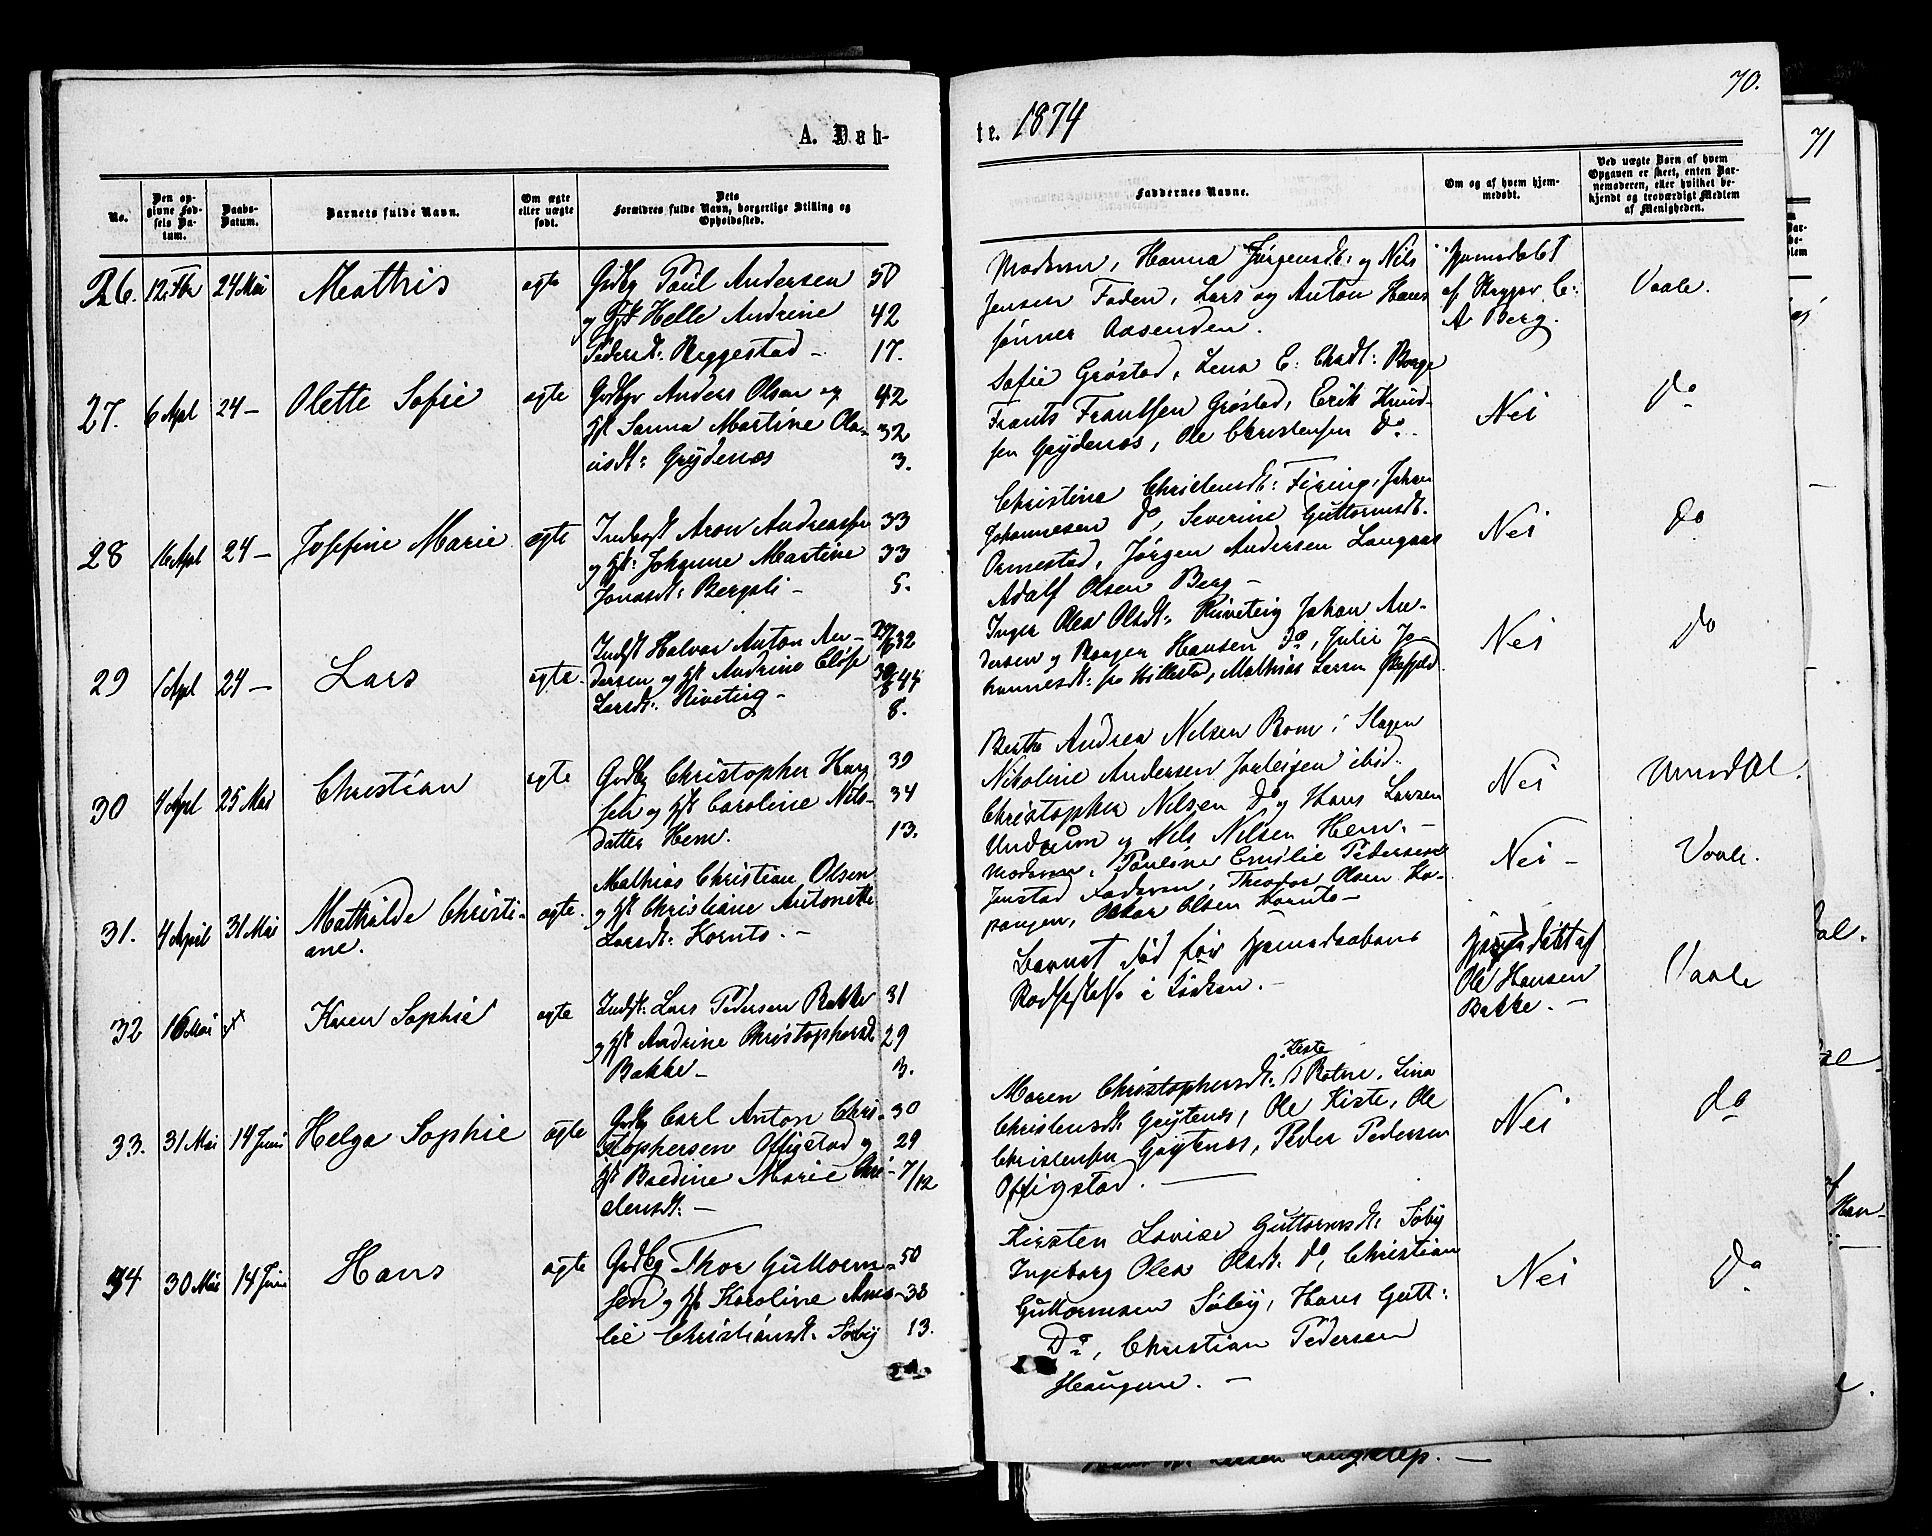 70.
71
A. Døb-
te. 1874
No.
Den op-
givne Fød-
sels Da-
tum.
Daabs-
Datum.
Barnets fulde Navn.
Om ægte
eller uægte
født.
Dets
Forældres fulde Navn, borgerlige Stilling og
Opholdssted.
Faddernes Navne.
Om og af hvem hjem-
medøbt.
Ved uægte Børn af hvem
Opgaven er skeet, enten Bar-
nemoderen, eller hvilket be-
kjendt og troværdigt Medlem
af Menigheden.
26. 24 Mai Mathis ægte Paul Andersen 50
og Helle Andrine 42
Pedersdt: Reggestad – 17.
Moderen, Hanna Jørgensdt: og Nils
Jensen Faden, Lars og Anton Hans
sønner Aasenden.
Hjemedøbt
af
A Berg.
Vaale.
27. 6 Apl 24 – Olette Sofie ægte Anders Olsen og 42
Sanna Martine Ola- 32
visdt: Grydenæs 3.
Sofie Grøstad, Lena C: Borge
Frants Frantsen Grøstad, Erik Knud-
sen Grydenæs, Ole Christensen Do.
Nei
Do
28 16 Apl 24 – Josefine Marie ægte Aron Andreassen 33
og Johanne Martine 33
Jonasdt: Bergsli – 5.
Christine Christensdt: Firing, Johan
Johannesen Do, Severine Guttormsdt.
Ormestad, Jørgen Andersen Langaas
Adolf Olsen Berg –
Nei
Do
29 Apl 24 – Lars ægte. Halvor Anton An- 32
dersen og Andrine 44
Larsdt: Riveteig – 8.
Inger Olea Olsdt: Riveteig Johan An-
dersen og Borger Hansen Do, Julie Jo-
hannesdt: fra Hillestad, Mathias
Nei
Do
30 4 Apl 25 Mai Christian ægte Christopher Han 39
sen og Caroline Nils- 34
datter Hem. 13.
Berthe Andrea Nilsen Rom i Slagen
Nikoline Andersen ibid.
Christopher Nilsen Do og Hans Larsen
Undrum og Nils Nilsen Hem. –
Nei
31. 4 April 31 Mai Mathilde Christi-
ane. ægte. Mathias Christian Olsen
og Christiane Antonette
Larsdt: Kornto. –
Moderen, Pauline Emilie Pedersen
Jonstad Faderen, Theodor Olsen Ko-
pangen, Oskar Olsen Kornto –
Nei –
Vaale.
32 16 Mai Karen Sophie ægte Lars Pedersen Bakke 31
og Andrine Christophersdt 29
Bakke – 3.
Barnet død før Hjemedaabens
i Kirken. –
af
Ole Hansen
Bakke. –
Vaale
33. 31 Mai 14 Juni Helga Sophie ægte Carl Anton Chri- 30
stophersen Offigstad og 29
Bredine Marie Chri- 7/12
stensdt: –
Maren Christophersdt: Kiste Rotne, Lina
Christensdt Grytenæs, Ole Kiste, Ole
Christensen Grytenæs, Peder Pedersen
Offigstad. –
Nei
Do
34 30 Mai 14 Juni Hans ægte Thor Guttorm- 50
sen og Karoline Ama- 38
lie Christiansdt: Søby 13.
Kirsten Lovise Guttormsdt: Søby
Ingeborg Olea Olsdt. Do, Christian
Guttormsen Søby, Hans Gutt:
Do, Christian Pedersen
Haugene. –
Nei
Do